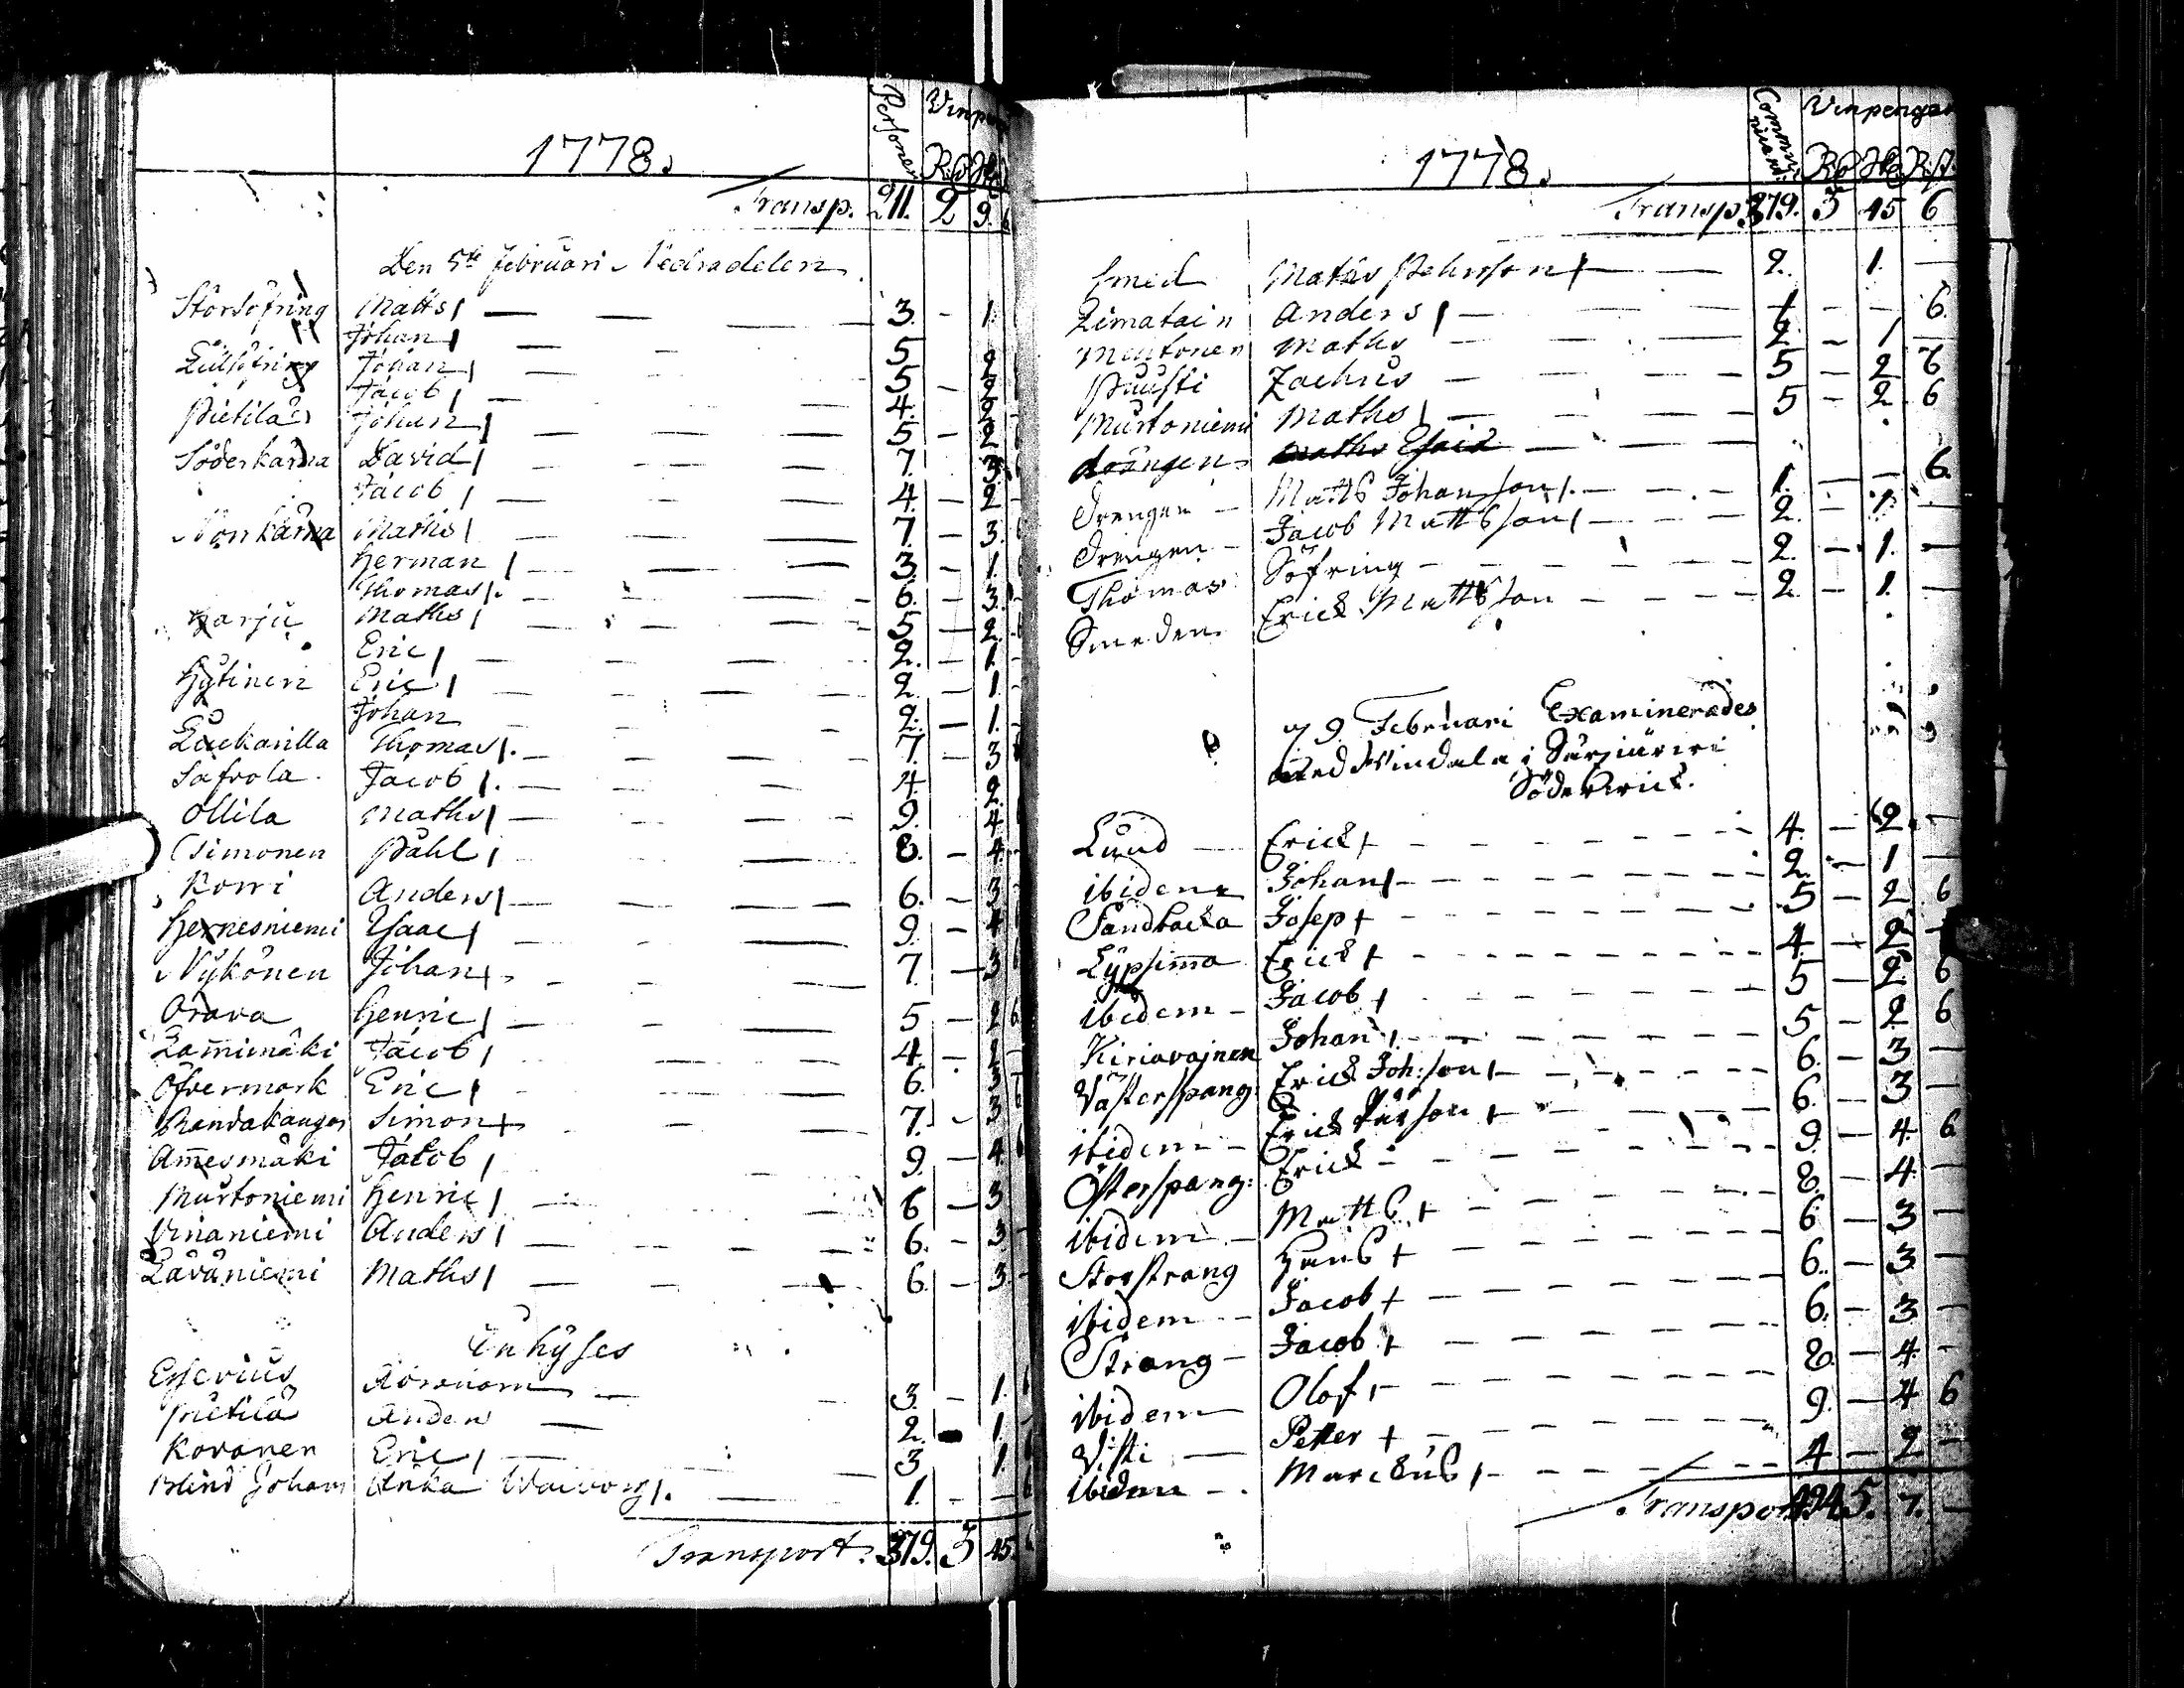 1778. Personer Vinpen
R.d
Transp. 211. 2 9. 6
Den 5te Februari Nedradelen
Storsöfring Matts 3. - 1.
Johan 5 2
Lillsöfring Johan 5 - 2
Jacob 4. 2
Pietilä Johan 5 - 2
Söderkarna David 7. 3
Jacob 4 - 2 -
Norrkarna Maths 7. - 3.
Herman 3. - 1.
Thomas 6. - 3.
Harju Maths 5 - 2.
Eric 2. - 1.
Hytinen Eric 2 - 1.
Johan 2. - 1.
Luckarilla Thomas 7. - 3
Säfvola Jacob 4. 2.
Ollila Maths 9. 4
Simonen Påhl 8. - 4.
Korri Anders 6. - 3
Hernesniemi Isaac 9. - 4
Nykönen Johan 7. - 3
Orava Henric 5 - 2 6
Lammimäki Jacob 4. - 2
Öfvermark Eric 6. 3
Randakangas Simon 7. - 3
Ammesmäki Jacob 9. - 4
Murtoniemi Henric 6 - 3
Vinaniemi Anders 6. - 3.
Lavaniemi Maths 6. - 3.
Inhyses
3. - 1.
Pietilä Anders 2. 1.
Koronen Eric 3 1.
Blind Johans Anka 1. - -
Transport. 379. 3 45.
1778. Communicant: Vinpengar
Rd
Transp. 379. 3 45 6
Smed Maths Pehrsson 2. 1. -
Limatain Anders 1 - - 6.
Meutonen Maths 2. - 1 -
Pausti Zachris 5 - 2 6
Murtoniemi Maths 5 - 2 6
drängen
Drengen Matts Johansson 1. - - 6.
Drengen Jacob Mattsson 2. - 1. -
Thomas Söfring 2. - 1. -
Smeden Erick Mattsson 2 - 1. -
79. Februari Examinerades
Söderwick.
Lund Erick 4. - 2. -
ibidem Johan 2. - 1 -
Sandbacka Josep 5 - 2 6
Lypsima Erick 4. - 2 -
ibidem Jacob 5 - 2. 6
Kiriavajnen Johan 5 - 2 6
Västerspang: Erick Joh:son 6. - 3 -
ibidem Erick Pärson 6. - 3 -
Österspang: Erick 9. - 4. 6
ibidem Matts 8. - 4. -
Storstrang Hans 6 - 3 -
ibidem Jacob 6. - 3 -
Strang Jacob 6. - 3 -
ibidem Olof 8. - 4. -
Visti Petter 9. - 4 6
ibidem Marckus 4 - 2 -
Transport 494. 5. 7. -